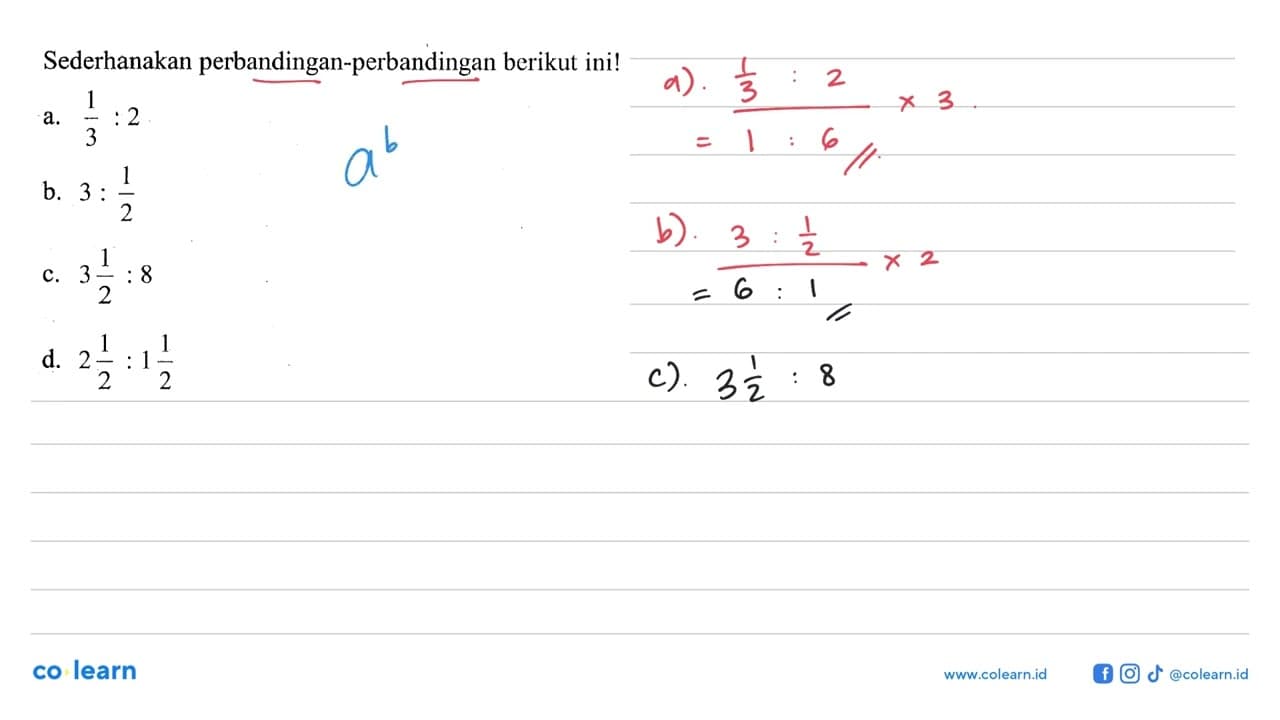 Sederhanakan perbandingan-perbandingan berikut ini!
a. 1/3 : 2
b. 3 : 1/2
c. 3 1/2 : 8
d. 2 1/2 : 1 1/2
a^b
a). 1/3 : 2 × 3
= 1 : 6 //
b). 3 : 1/2 × 2
= 6 : 1 //
c). 3 1/2 : 8
co learn
www.colearn.id
@colearn.id